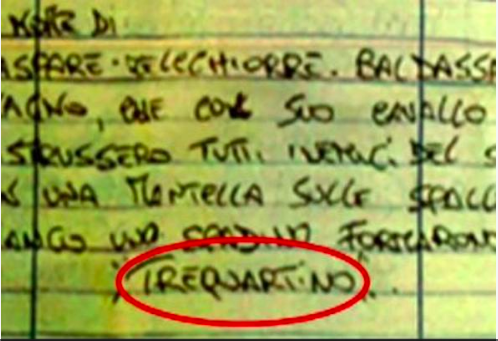 NOME DI
ASPARE. MELCHIORRE. BALDASSA
AGNO, CHE COL SUO CAVALLO
STRUSSERO TUTTI I NEMICI DEL S
N UNA MANTELLA SULLE SPALL
ANCO UNO SPADINO FORMARONO
"TREQUARTINO".